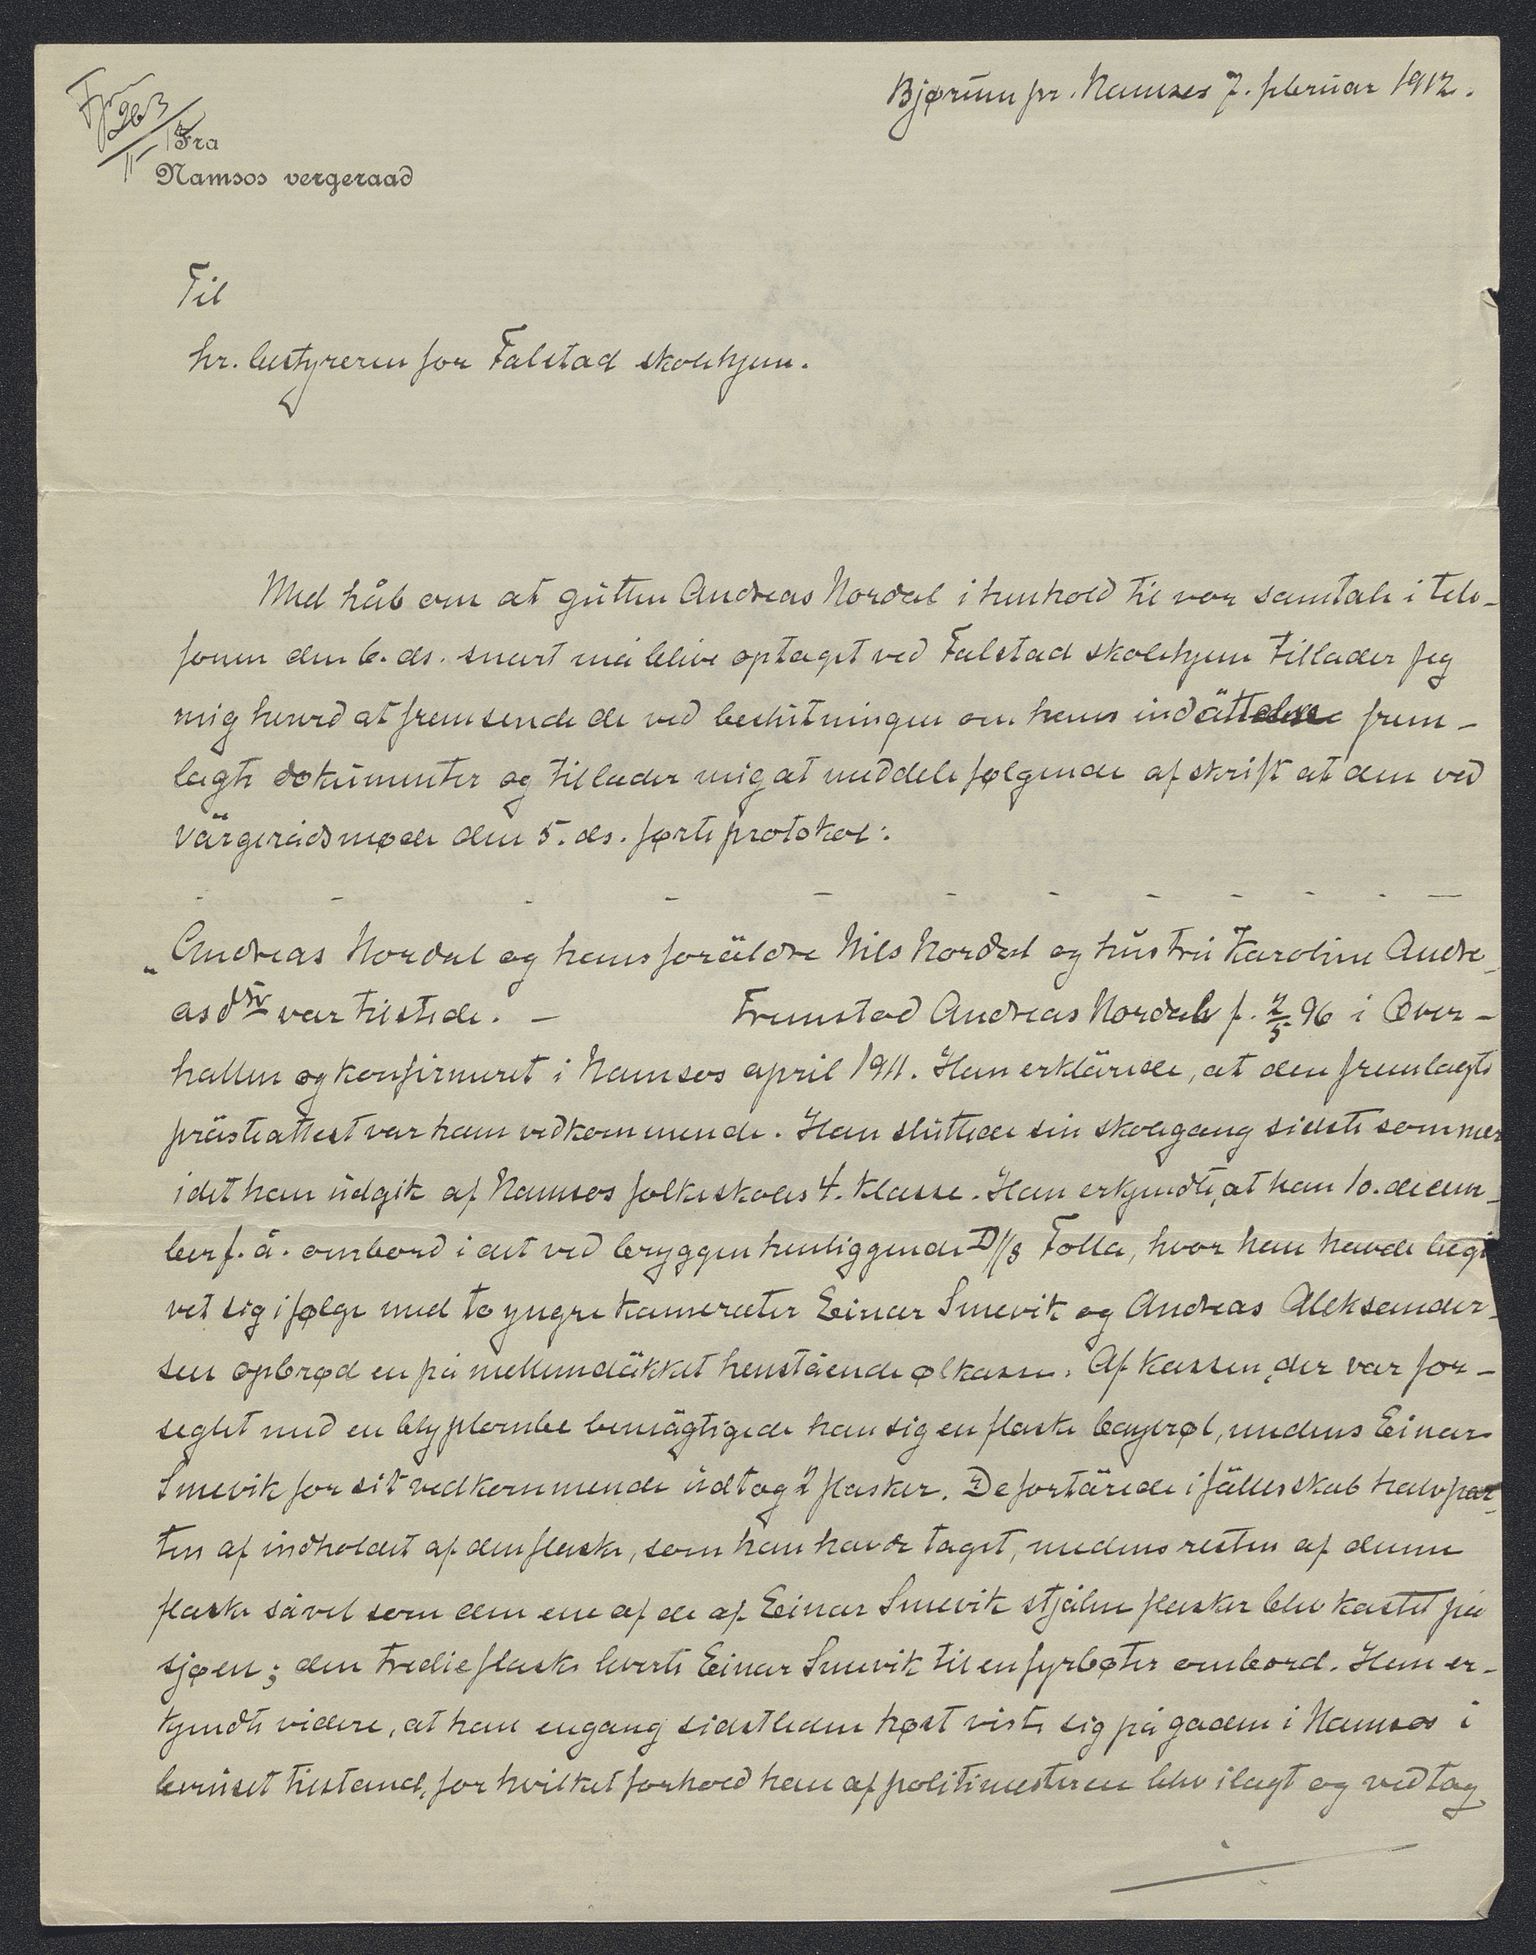 Bjørum pr. Namsos 7. februar 1912.
263
Fra
Namsos vergeraad
Til
hr. bestyreren for Falstad skolehjem.
Med håb om at gutten Andreas Nordal i henhold til vor samtale i tele-
fonen den 6. ds. snart må blive optaget ved Falstad skolehjem tillader jeg
mig herved at fremsende de ved beslutningen om hans indsättelse frem-
lagte dokumenter og tillader mig at meddele følgende afskrift at den ved
värgerådsmøde den 5. ds. førte protokol:
"Andreas Nordal og hans foräldre Nils Nordal og hustru Karoline Andre-
asdtr var tilstede. - Fremstod Andreas Nordal f. 2/5 96 i Over-
hallen og konfirmeret i Namsos april 1911. Han erklärede, at den fremlagte
prästeattest var ham vedkommende. Han sluttede sin skolegang sidste sommer
idet han udgik af Namsos folkeskoles 4. klasse. Han erkjendte, at han 10. decem-
ber f. å. ombord i det ved bryggen henliggende D/S Folla, hvor han havde begi
vet sig i følge med to yngre kamerater Einar Smevik og Andreas Aleksander-
sen opbrød en på mellemdäkket henstående ølkasse. Af kassen, der var for-
seglet med en blyplombe bemägtigede han sig en flaske bayerøl, medens Einar
Smevik for sit vedkommende udtog 2 flasker. De fortärede i fällesskab halvpar-
ten af indholdet af den flaske, som han havde taget, medens resten af denne
flaske såvel som den ene af de af Einar Smevik stjålne flasker blev kastet på
sjøen; den tredie flaske leverte Einar Smevik til en fyrbøter ombord. Han er-
kjendte videre, at han engang sidstleden høst viste sig på gaden i Namsos i
beruset tilstand, for hvilket forhold han af politimesteren blev ilagt og vedtog